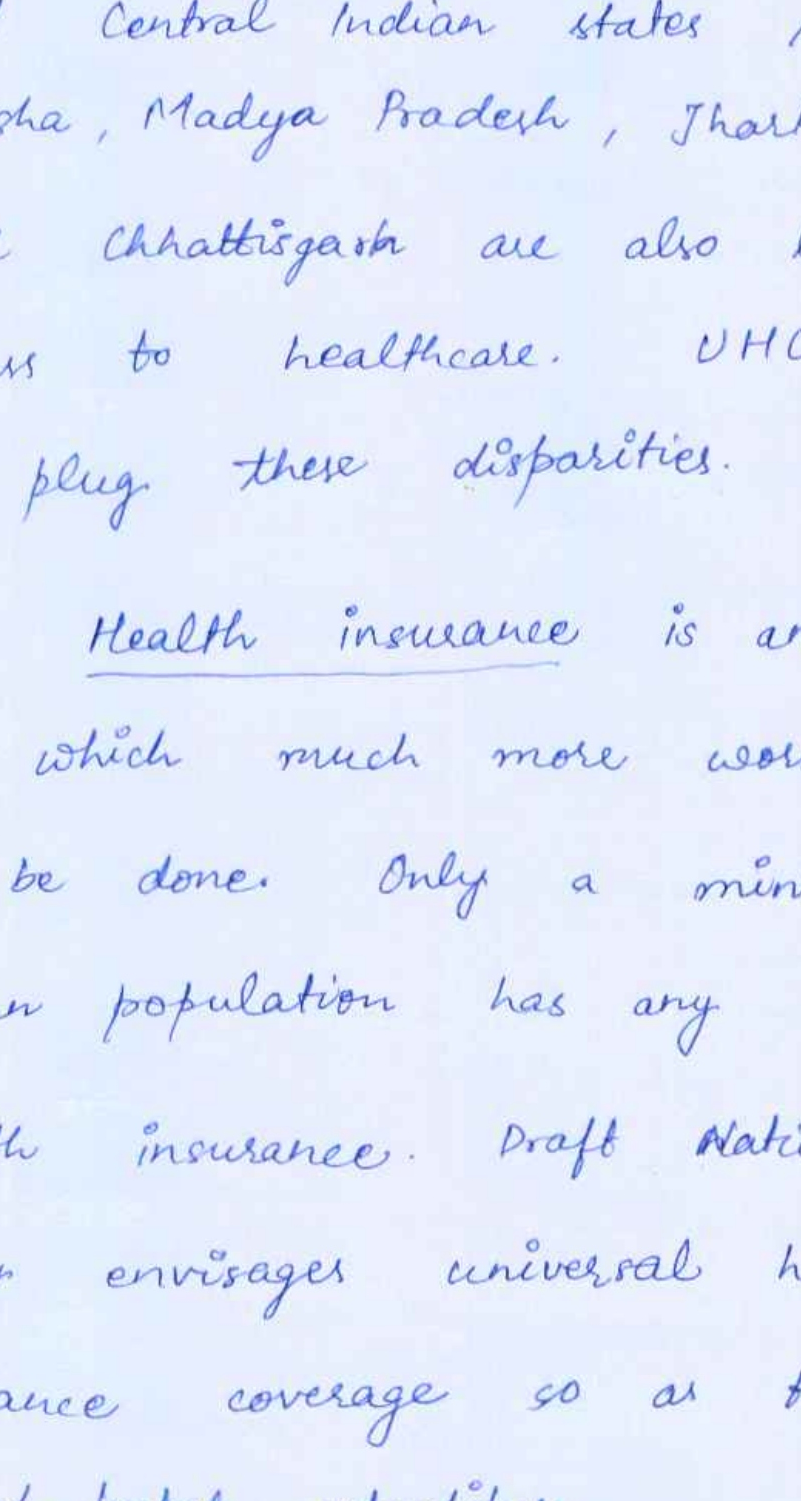 Central Indian states
sha, Madya Pradesh, Jhark
Chhattisgarh are also
ss to healthcare. UHC
plug these disparities.
Health insurance is an
which much more wor
be done. Only a min
n population has any
th insurance. Draft Nati
envisages universal h
ance coverage so as t